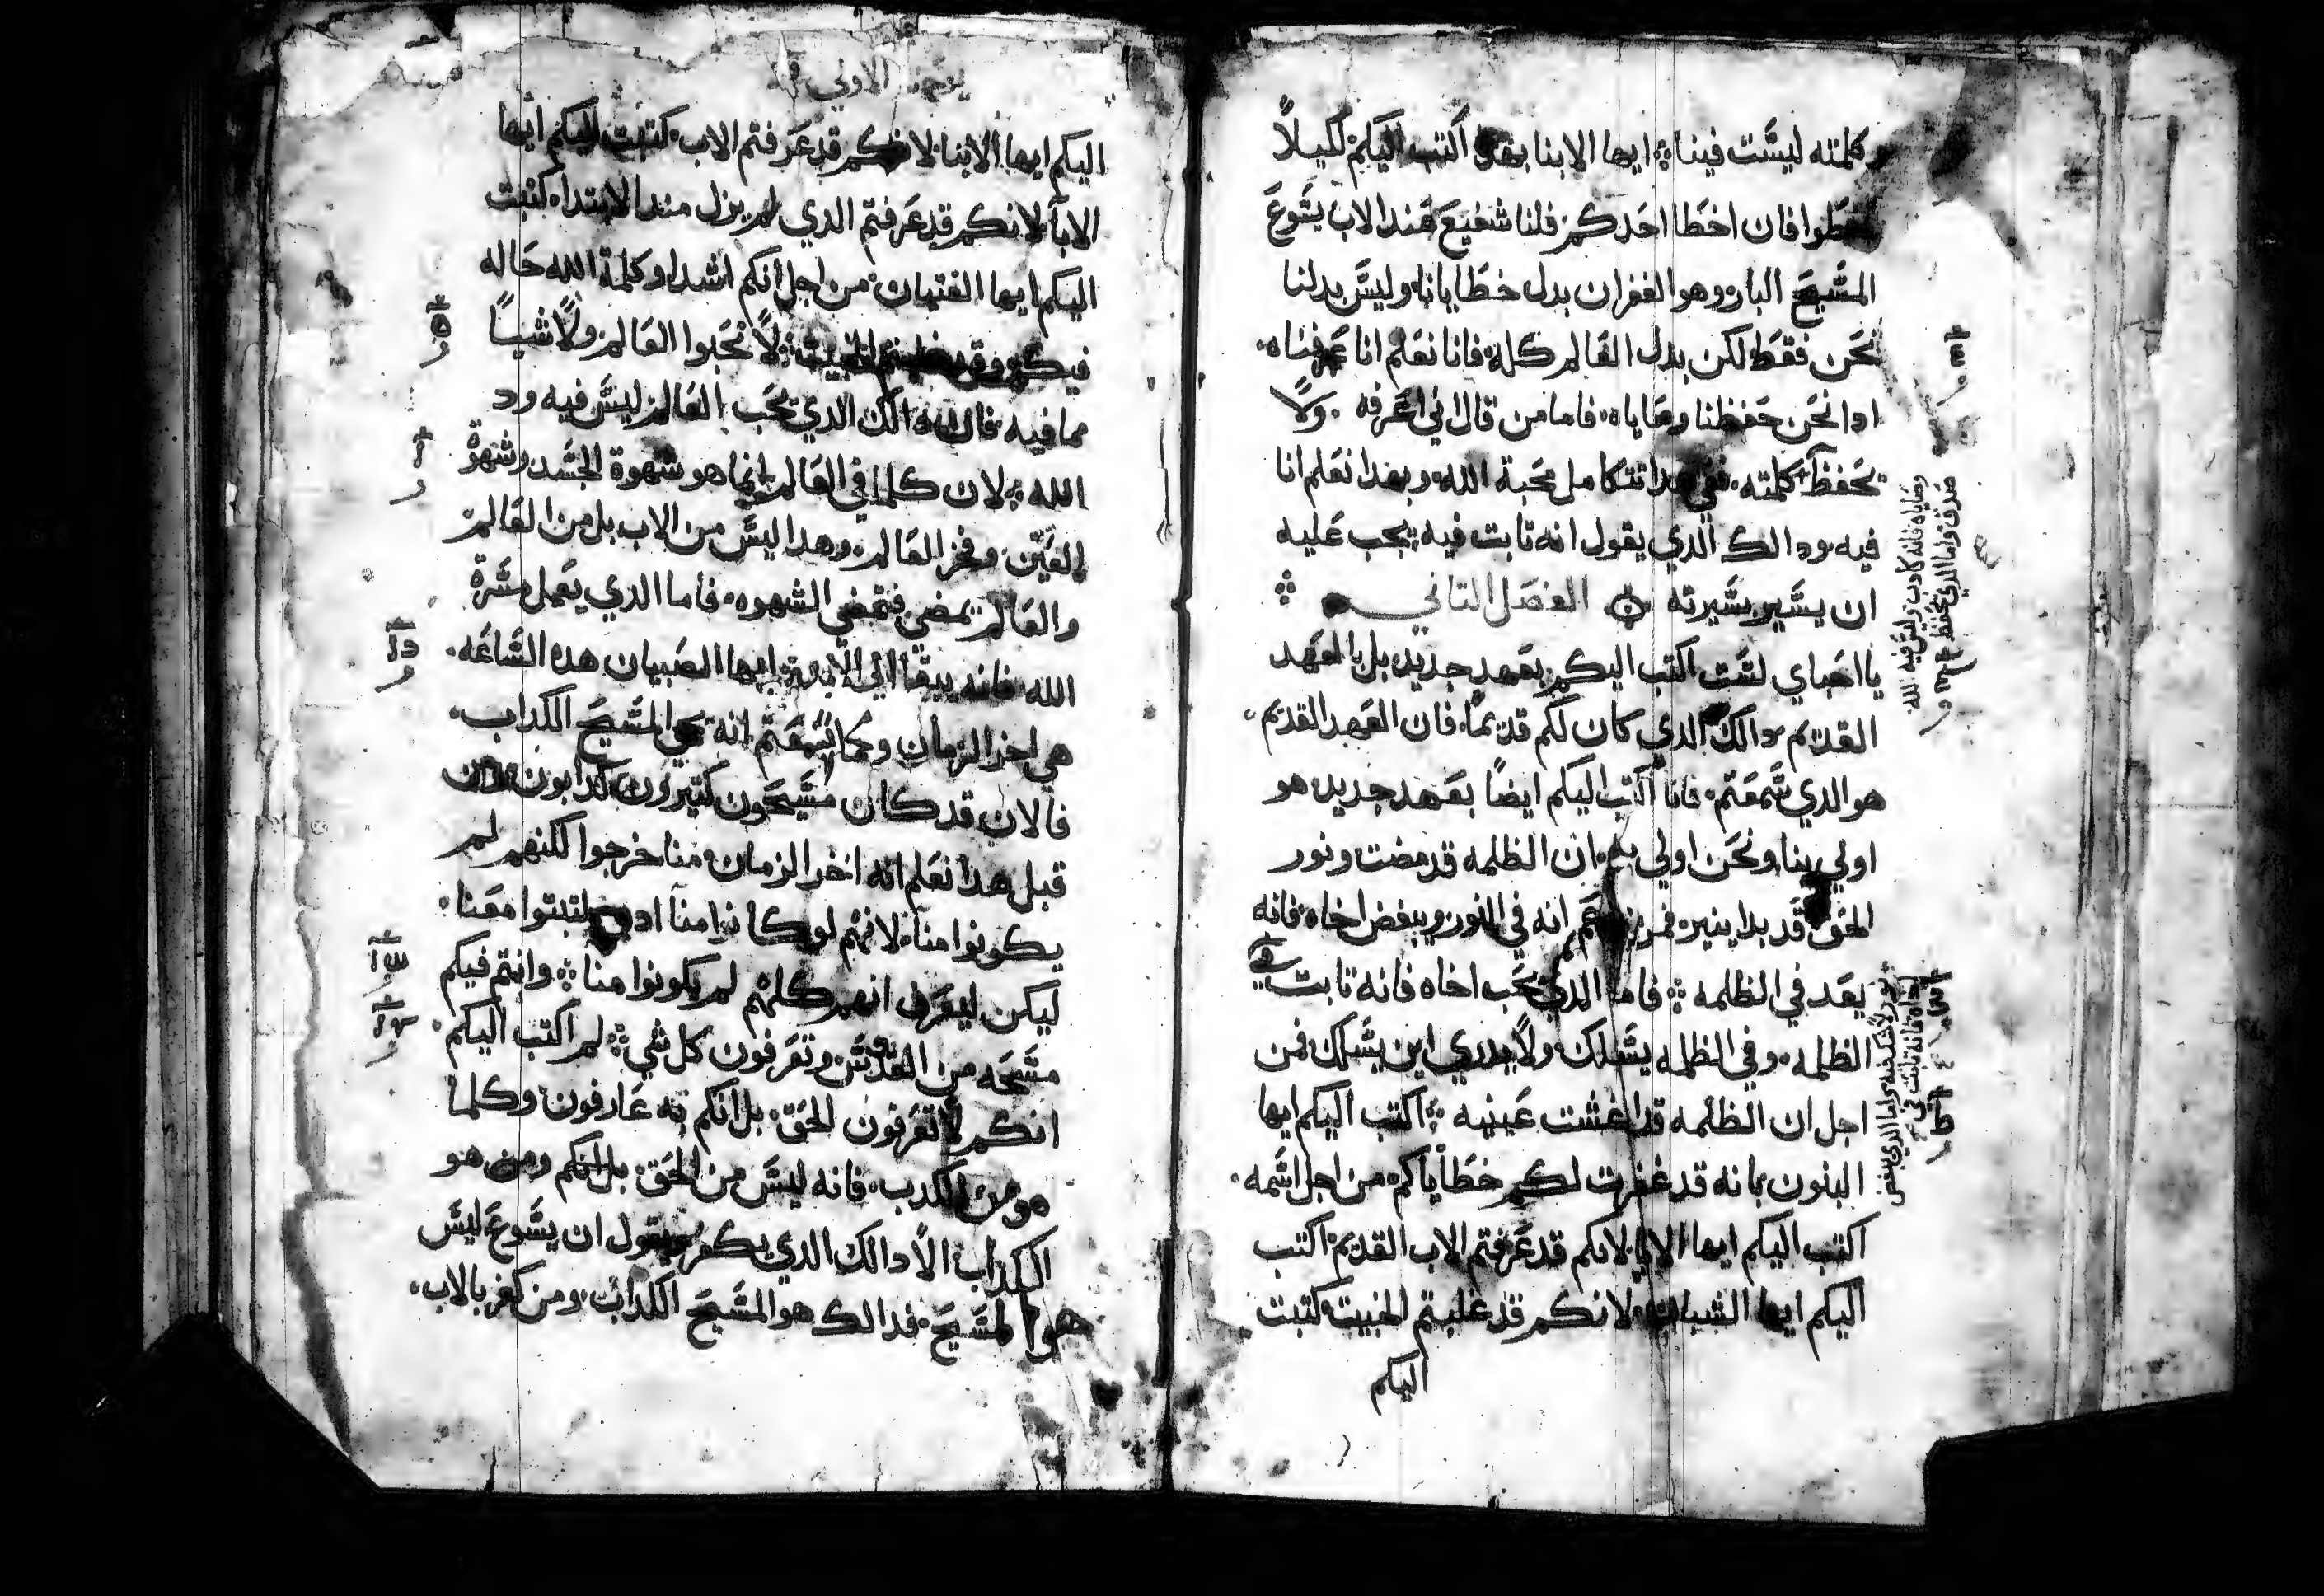 وكلمته ليست فينا ايها الابنا بهدا اكتب اليكم لكيلا
تخطوا فان اخطا احدكم فلنا شفيع عند الاب يشوع
المسيح البار وهو الغفران بدل خطايانا وليس بدلنا
نحن فقط لكن بدل العالم كله فانا نعلم انا عرفناه
ادا نحن حفظنا وصاياه فاما من قال اني اعرفه ولا
يحفظ كلمته ففي هدا تتكامل محبة الله وبهدا نعلم انا
فيه ودالك الدي يقول انه تابت فيه يجب عليه
ان يسير بسيرته الفصل التاني
يا احباي لست اكتب اليكم بعهد جديد بل بالعهد
القديم دالك الدي كان لكم قديما فان العهد القديم
هو الدي سمعتم فانا اكتب اليكم ايضا بعهد جديد هو
اولي بنا ونحن اولي به ان الظلمه قد مضت ونور
الحق قد بدا ينير فمن زعم انه في النور ويبغض اخاه فانه
يعد في الظلمه فاما الدي يحب اخاه فانه تابت في
الظلمه وفي الظلمه يسلك ولا يدري اين يسلك فمن
اجل ان الظلمه قد اغشت عينيه اكتب اليكم ايها
البنون بانه قد غفرت لكم خطاياكم من اجل اسمه
اكتب اليكم ايها الابا لانكم قد عرفتم الاب القديم اكتب
اليكم ايها الشبان لانكم قد غلبتم الخبيت كتبت
اليكم
وصاياه فانه كادب وليس فيه
صدق واما الدي يحفظ
نور لا شك فيه واما الدي يبغض
اخاه فانه تابت في
الاولي
اليكم ايها الابنا لانكم قد عرفتم الاب كتبت اليكم ايها
الابا لانكم قد عرفتم الدي لم يزل مند الابتدا كتبت
اليكم ايها الفتيان من اجل انكم اشدا وكلمة الله حاله
فيكم وقد غلبتم الخبيت لا تحبوا العالم ولا شيا
مما فيه فان دالك الدي يحب العالم ليس فيه ود
الله لان كلما في العالم انما هو شهوة الجسد وشهوة
العين وفخر العالم وهدا ليس من الاب بل من العالم
والعالم يمضي فتمضي الشهوه فاما الدي يعمل مسرة
الله فانه يبقا الي الابد ايها الصبيان هده الساعه
هي اخر الزمان وكما سمعتم انه يجي المسيح الكداب
فالان قد كان مسيحون كتيرون كدابون
قبل هدا نعلم انه اخر الزمان منا خرجوا لكنهم لم
يكونوا منا لانهم لو كانوا منا ادن لتبتوا معنا
ليكن ليعرف انهم كلهم لم يكونوا منا وانتم فيكم
مسحه من القدوس وتعرفون كل شي لم اكتب اليكم
انكم لا تعرفون الحق بل انكم به عارفون وكلما
هو من الكدب فانه ليس من الحق بل انكم ومن هو
الكداب الا دالك الدي يكفر ويقول ان يسوع ليس
هوا المسيح فدالك هو المسيح الكداب ومن كفر بالاب